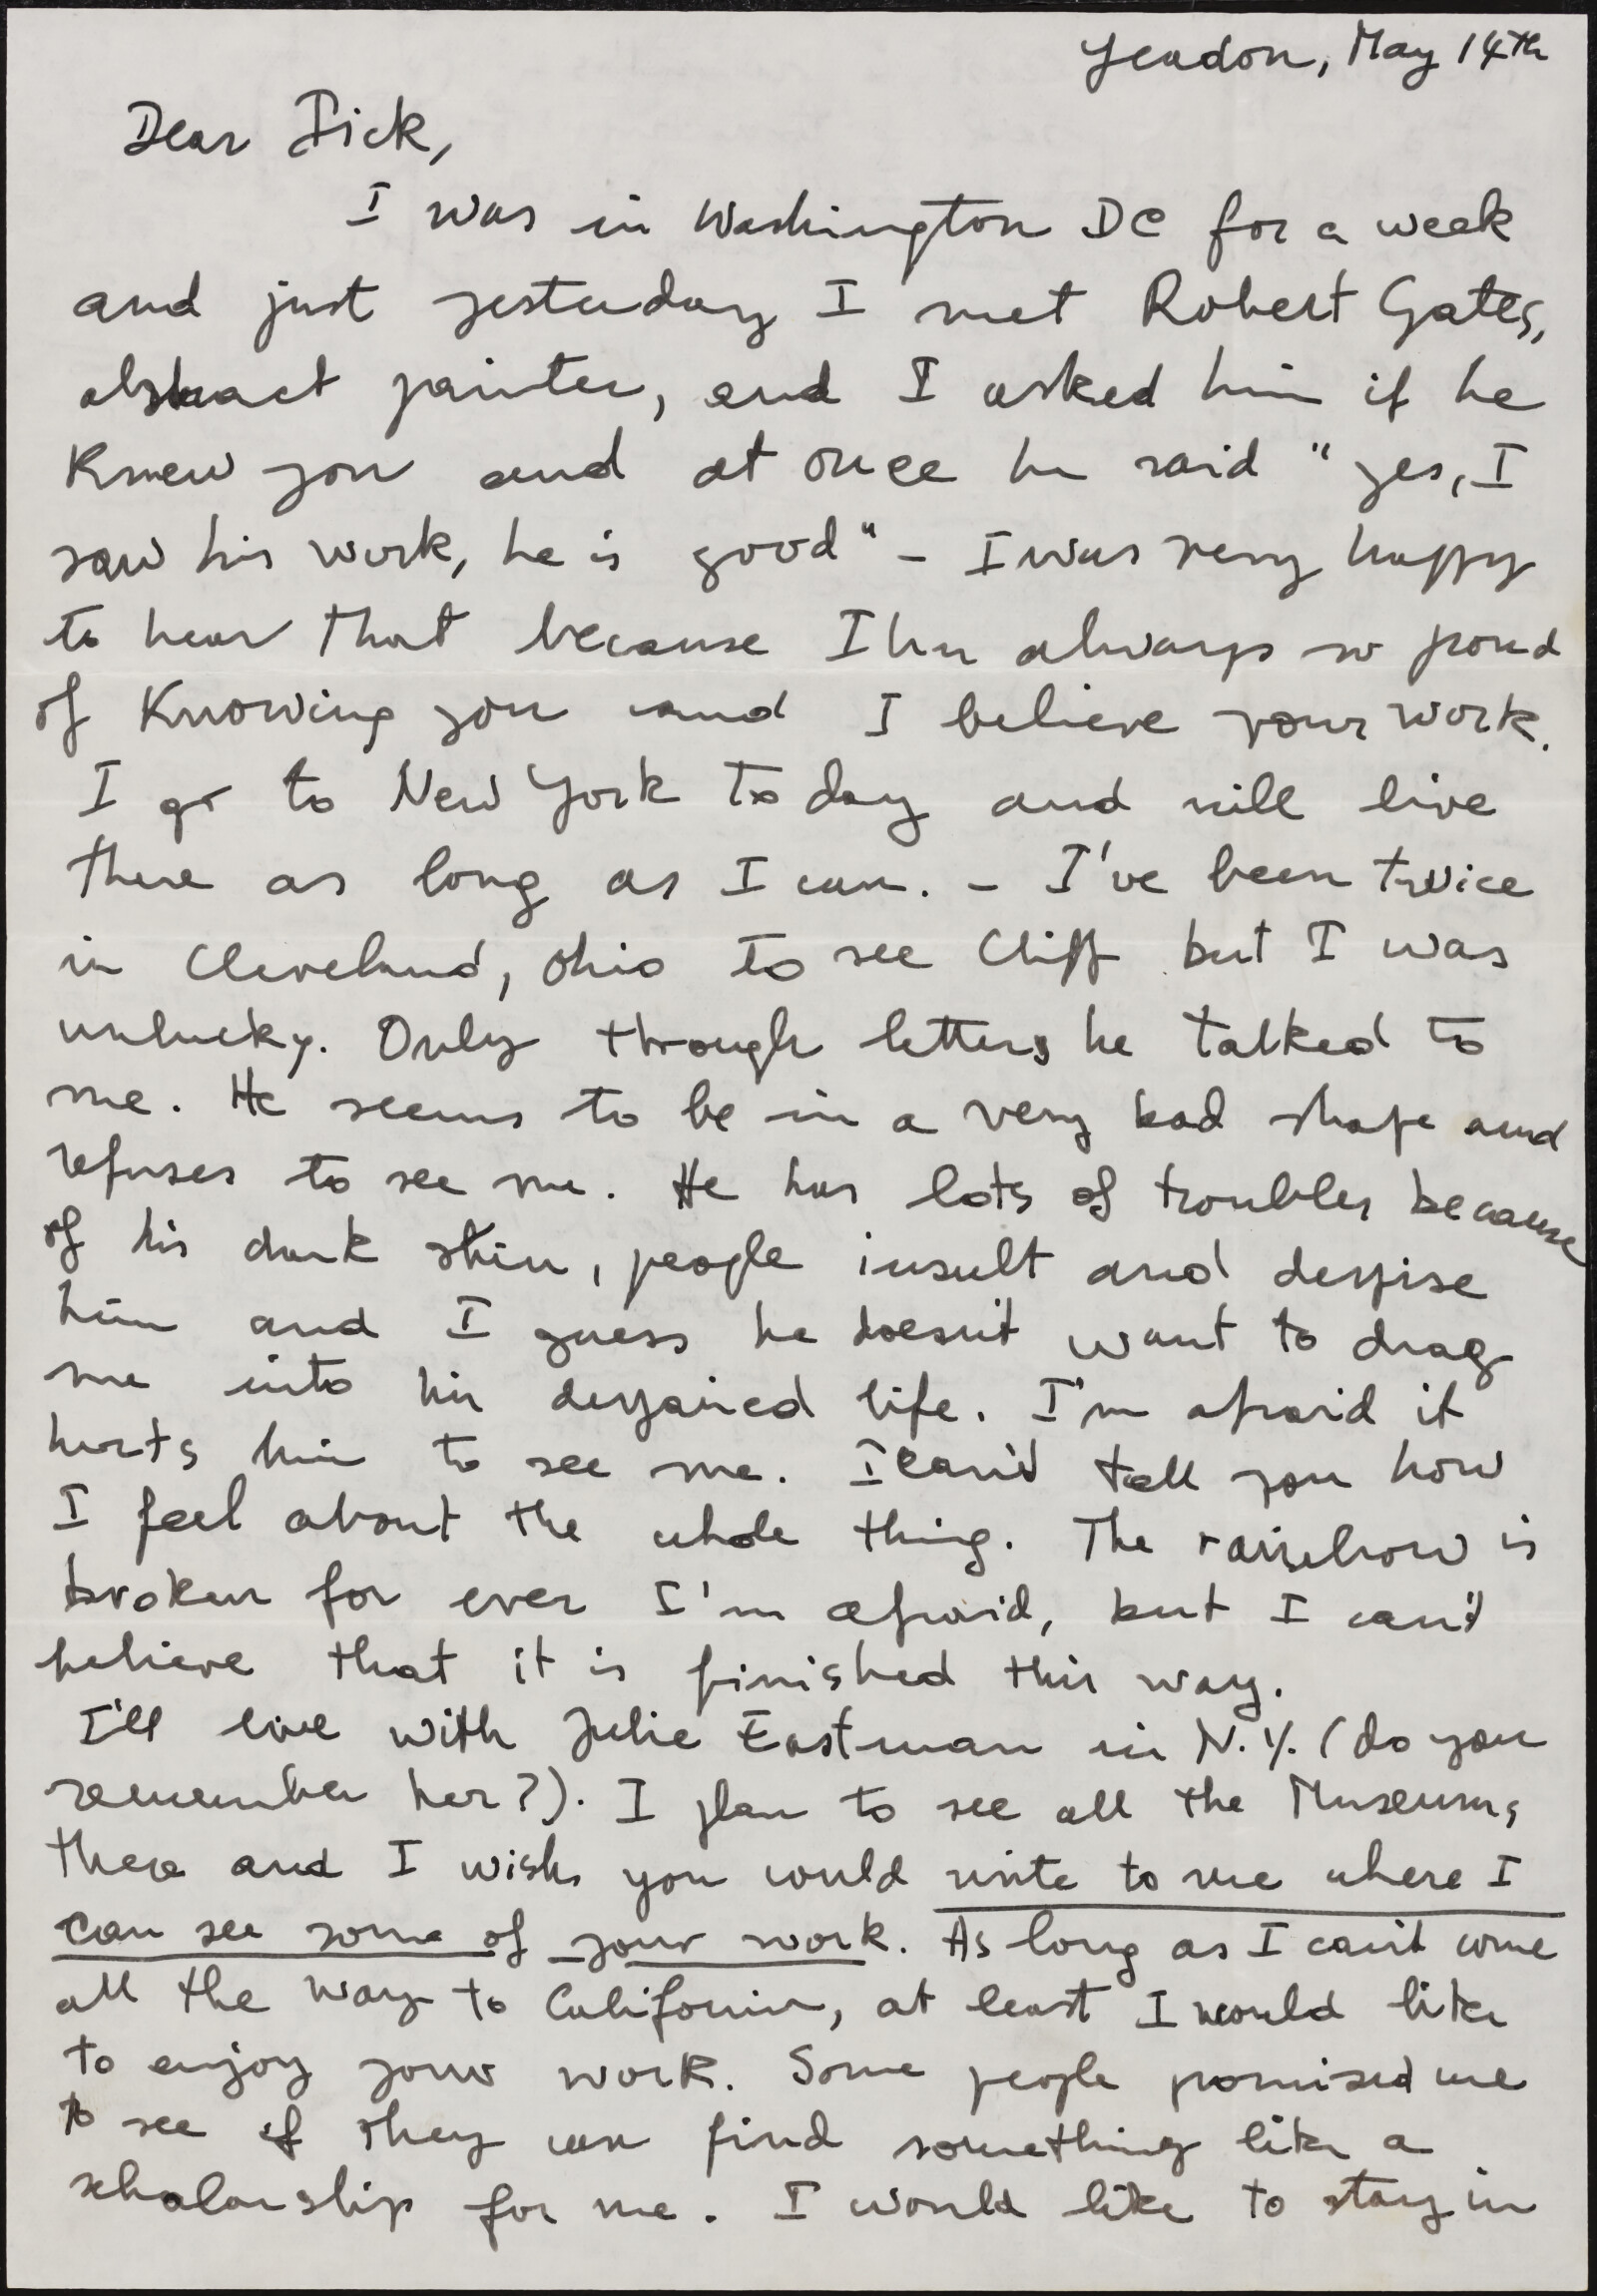 Yeadon, May 14th
Dear Dick,
I was in Washington DC for a week
and just yesterday I met Robert Gates,
abstract painter, and I asked him if he
knew you and at once he said "yes, I
saw his work, he is good" – I was very happy
to hear that because I am always so proud
of knowing you and I believe your work.
I go to New York today and will live
there as long as I can. – I've been twice
in Cleveland, Ohio to see Cliff but I was
unlucky. Only through letters he talked to
me. He seems to be in a very bad shape and
refuses to see me. He has lots of troubles because
of his dark skin, people insult and despise
him and I guess he doesn't want to drag
me into his despaired life. I'm afraid it
hurts him to see me. I can't tell you how
I feel about the whole thing. The rainbow is
broken for ever I'm afraid, but I can't
believe that it is finished this way.
I'll live with Julie Eastman in N.Y. (do you
remember her?). I plan to see all the Museums
there and I wish you would write to me where I
can see some of your work. As long as I can't come
all the way to California, at least I would like
to enjoy your work. Some people promised me
to see if they can find something like a
scholarship for me. I would like to stay in